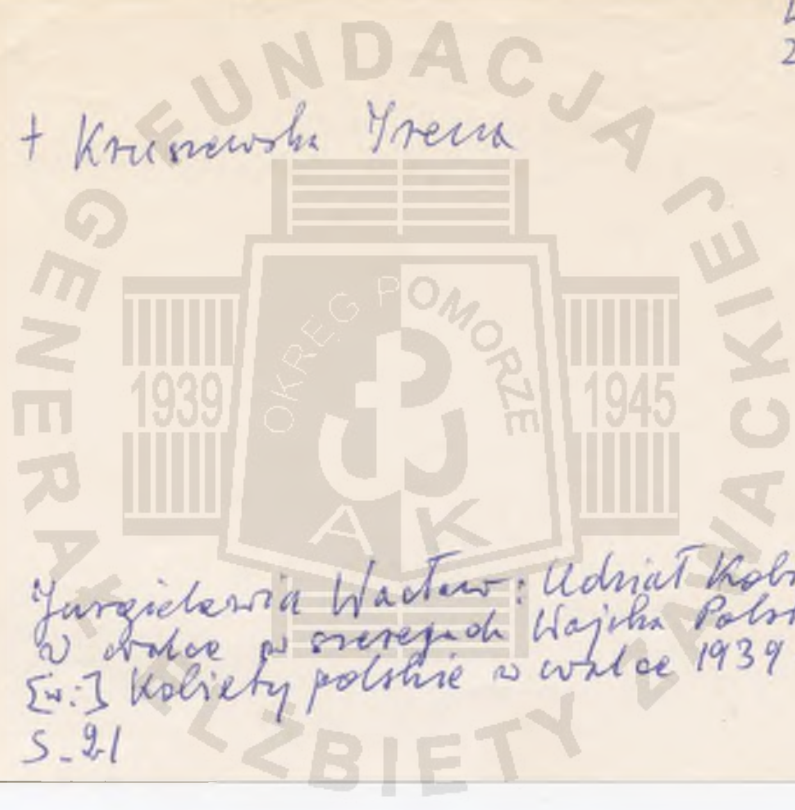 + Kruszewska Irena
Jurgielewicz Wacław: Udział Kobi
w walce w szeregach Wojska Polsk
[w:] Kobiety polskie w walce 1939
S. 21
FUNDACJA
GENERAŁ
ELŻBIETY ZAWACKIEJ
OKRĘG POMORZE
1939
1945
AK